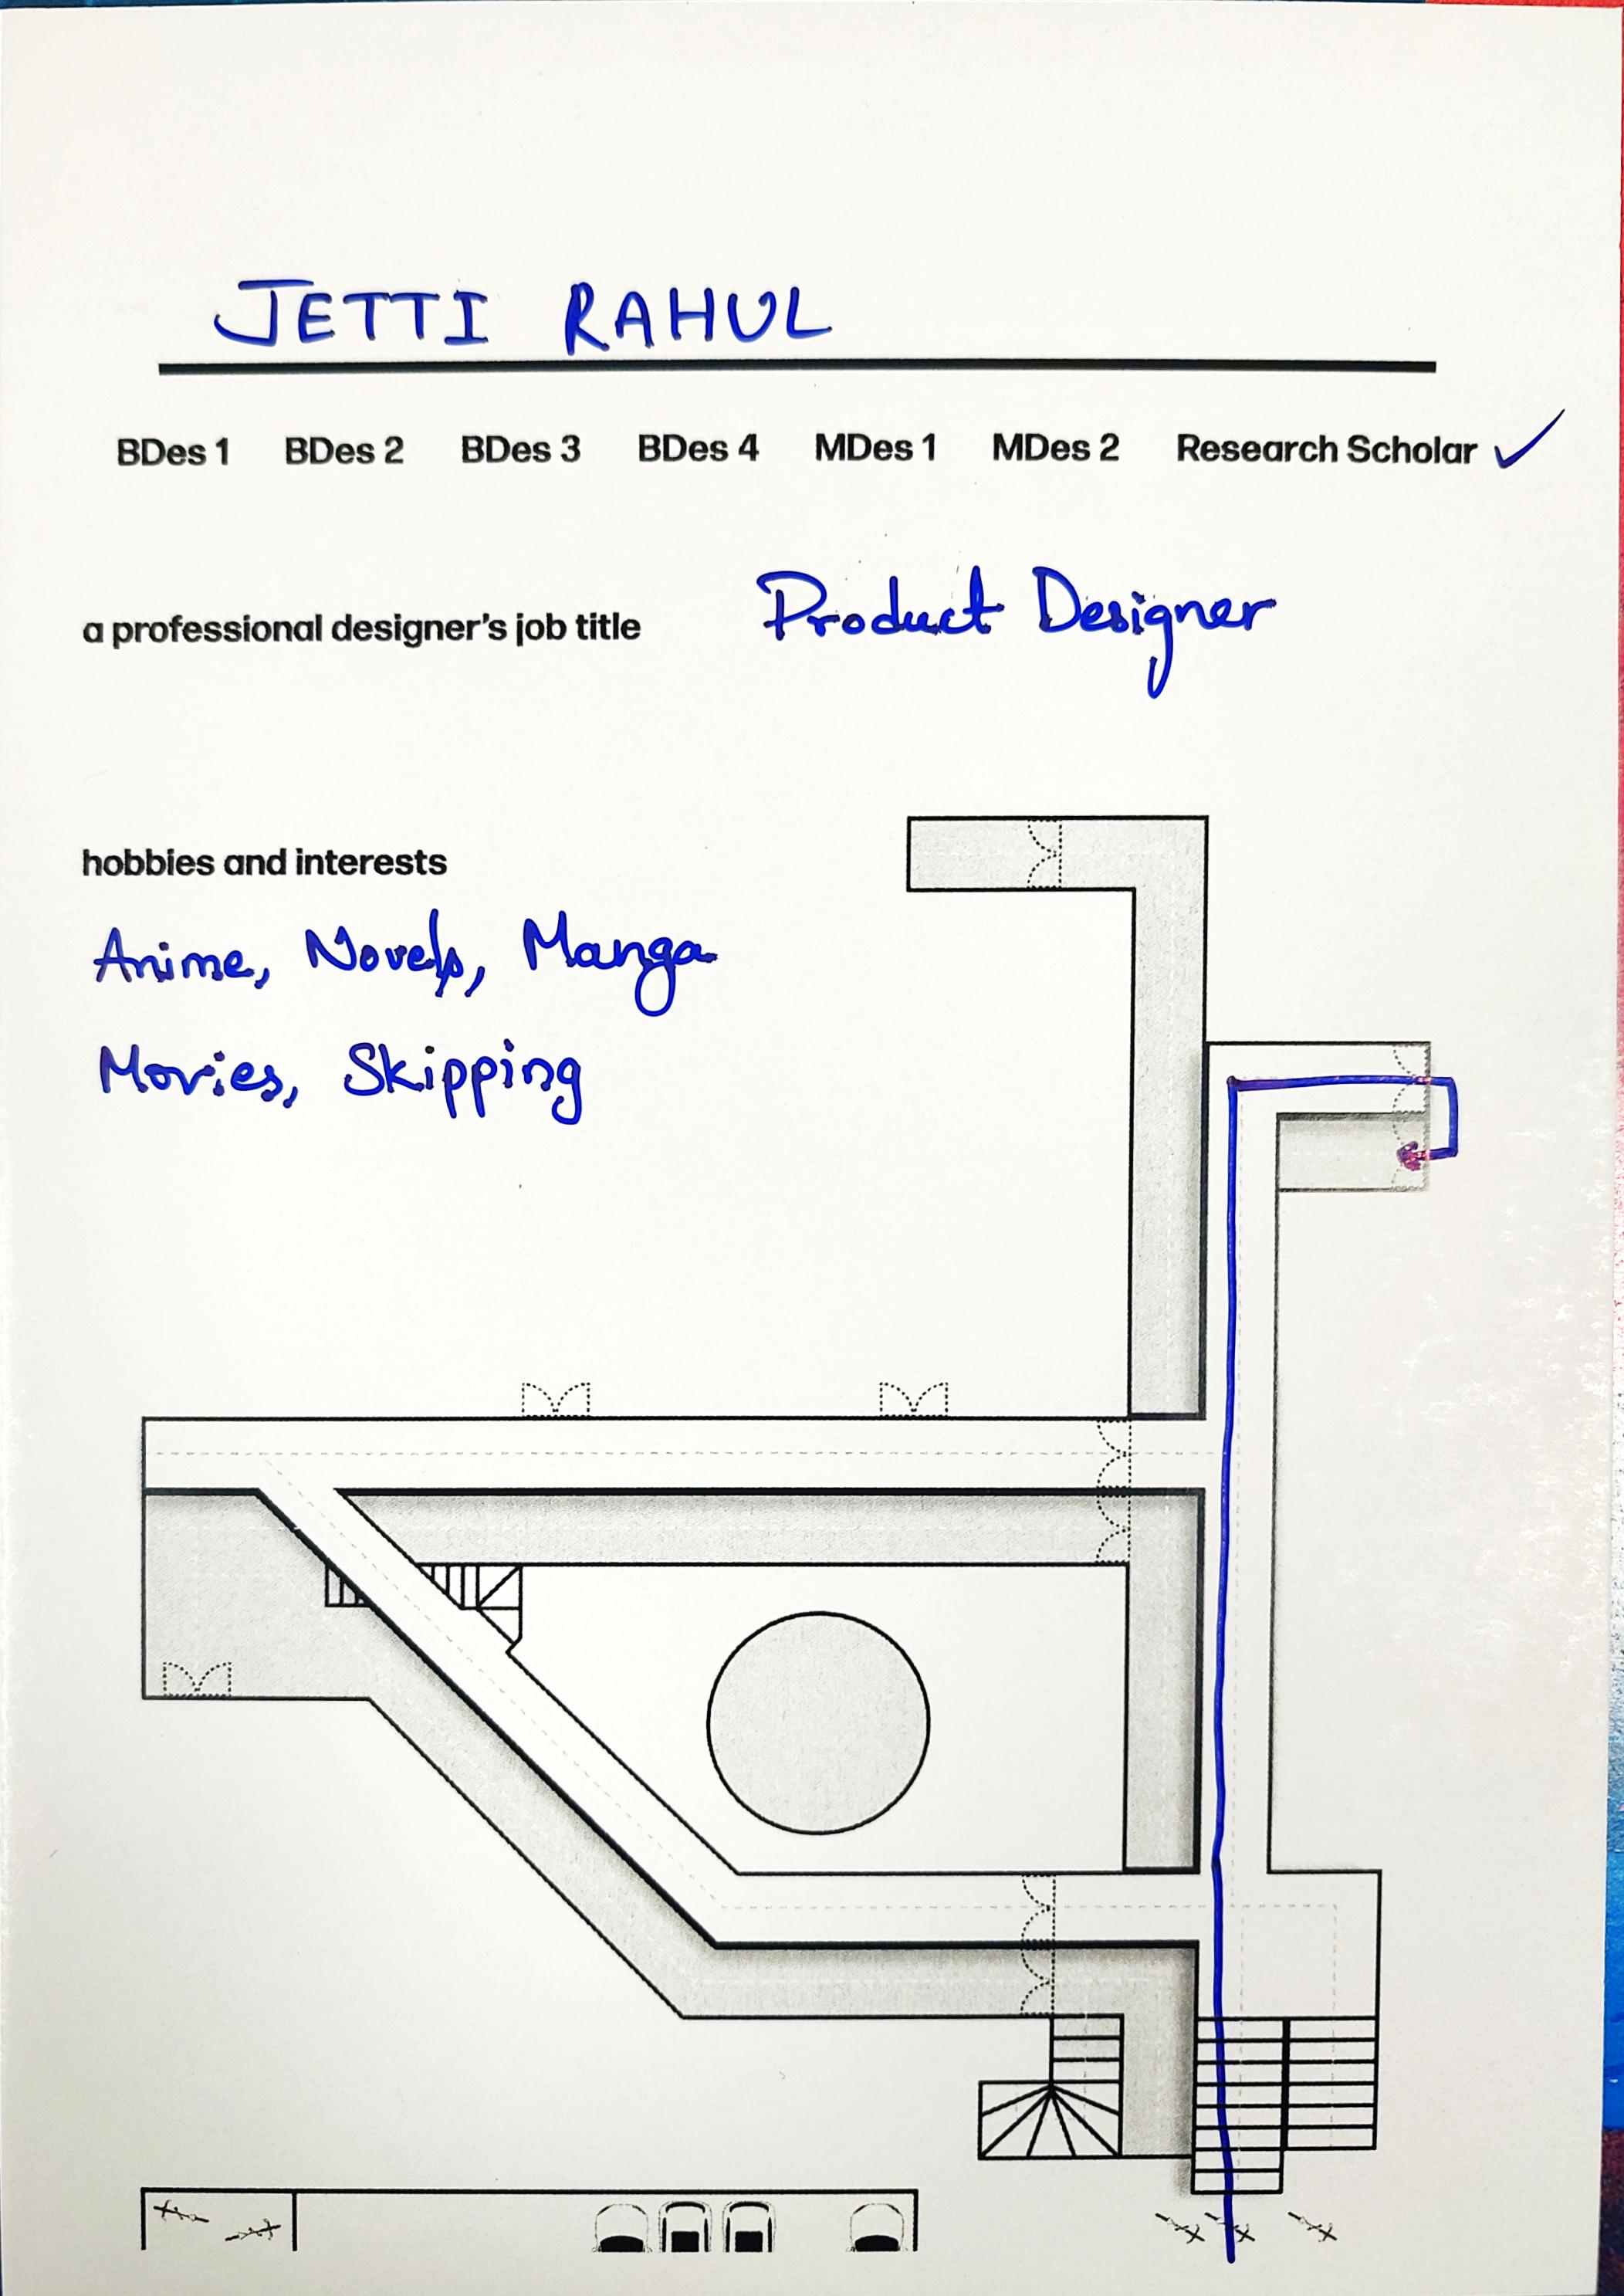 JETTI RAHUL
BDes 1 BDes 2 BDes 3 BDes 4 MDes 1 MDes 2 Research Scholar ✓
a professional designer's job title Product Designer
hobbies and interests
Anime, Novels, Manga
Movies, Skipping